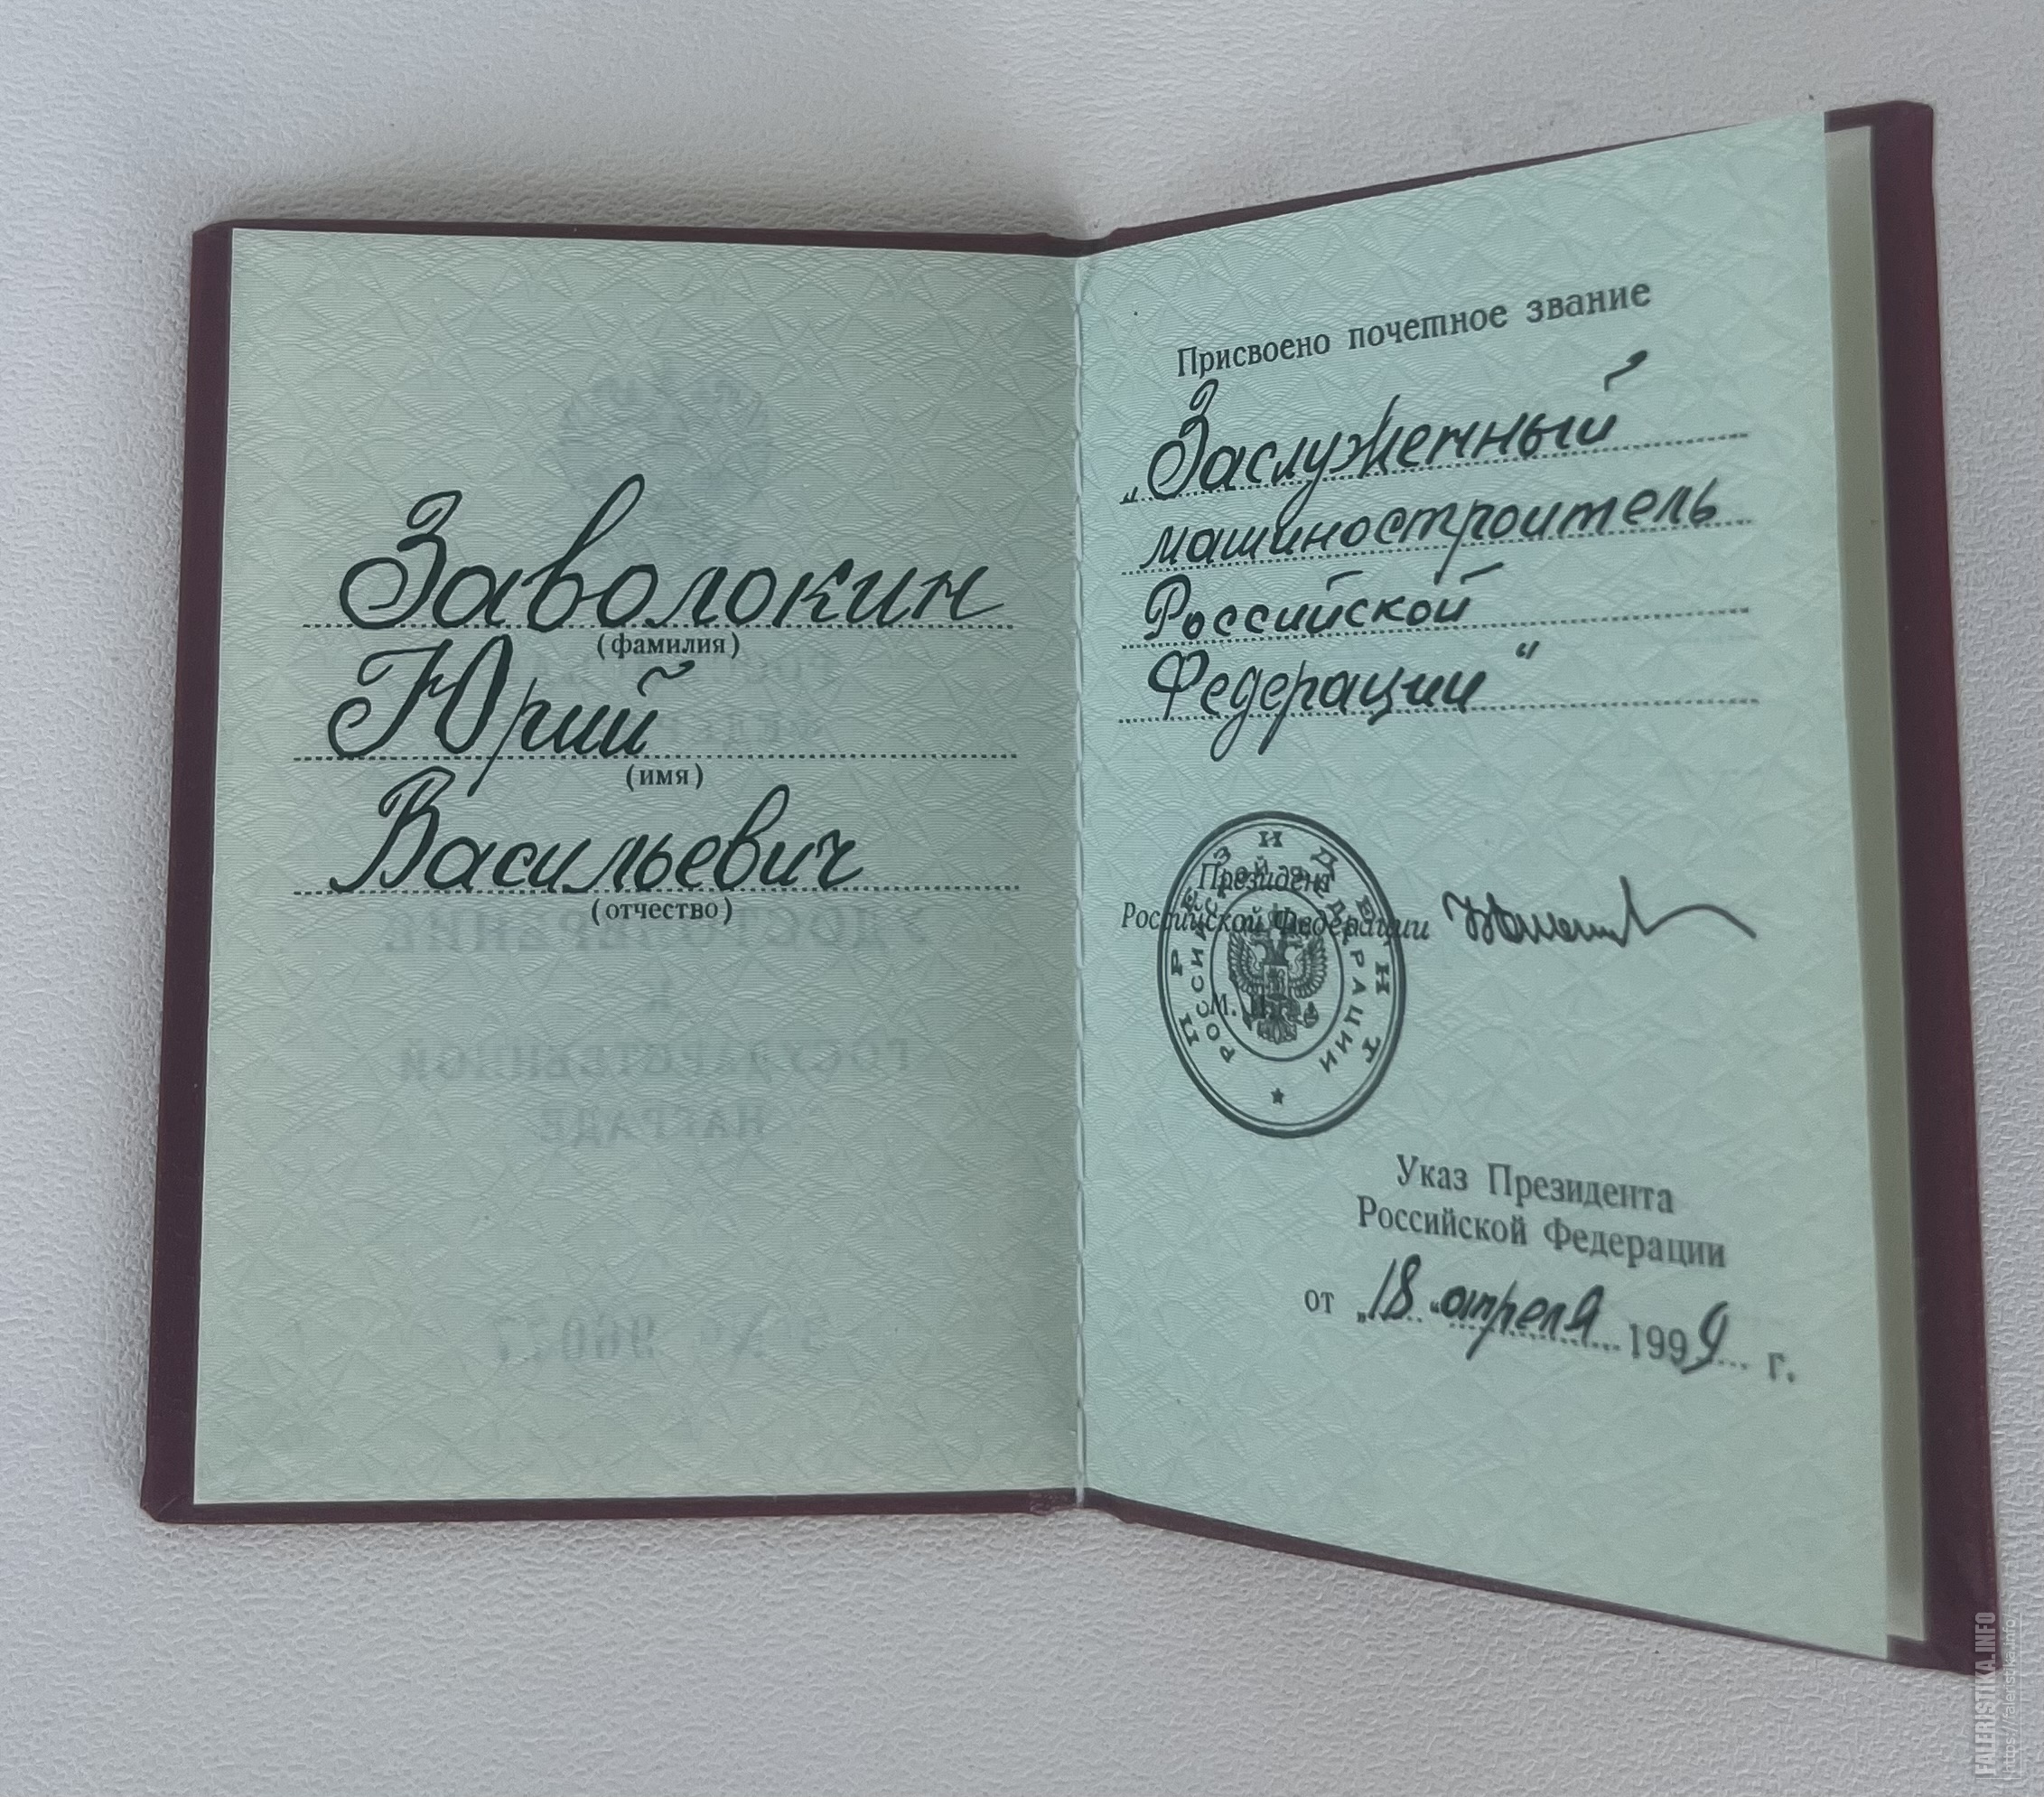 Заволокин
(фамилия)
Юрий
(имя)
Васильевич
(отчество)
УДОСТОВЕРЕНИЕ
К
ГОСУДАРСТВЕННОЙ
НАГРАДЕ
Присвоено почетное звание
„Заслуженный
машиностроитель
Российской
Федерации“
Президент
Российской Федерации
М. П.
ПРЕЗИДЕНТ
РОССИЙСКОЙ ФЕДЕРАЦИИ
Указ Президента
Российской Федерации
от „18“ апреля 1999 г.
FALERISTIKA.INFO
https://faleristika.info